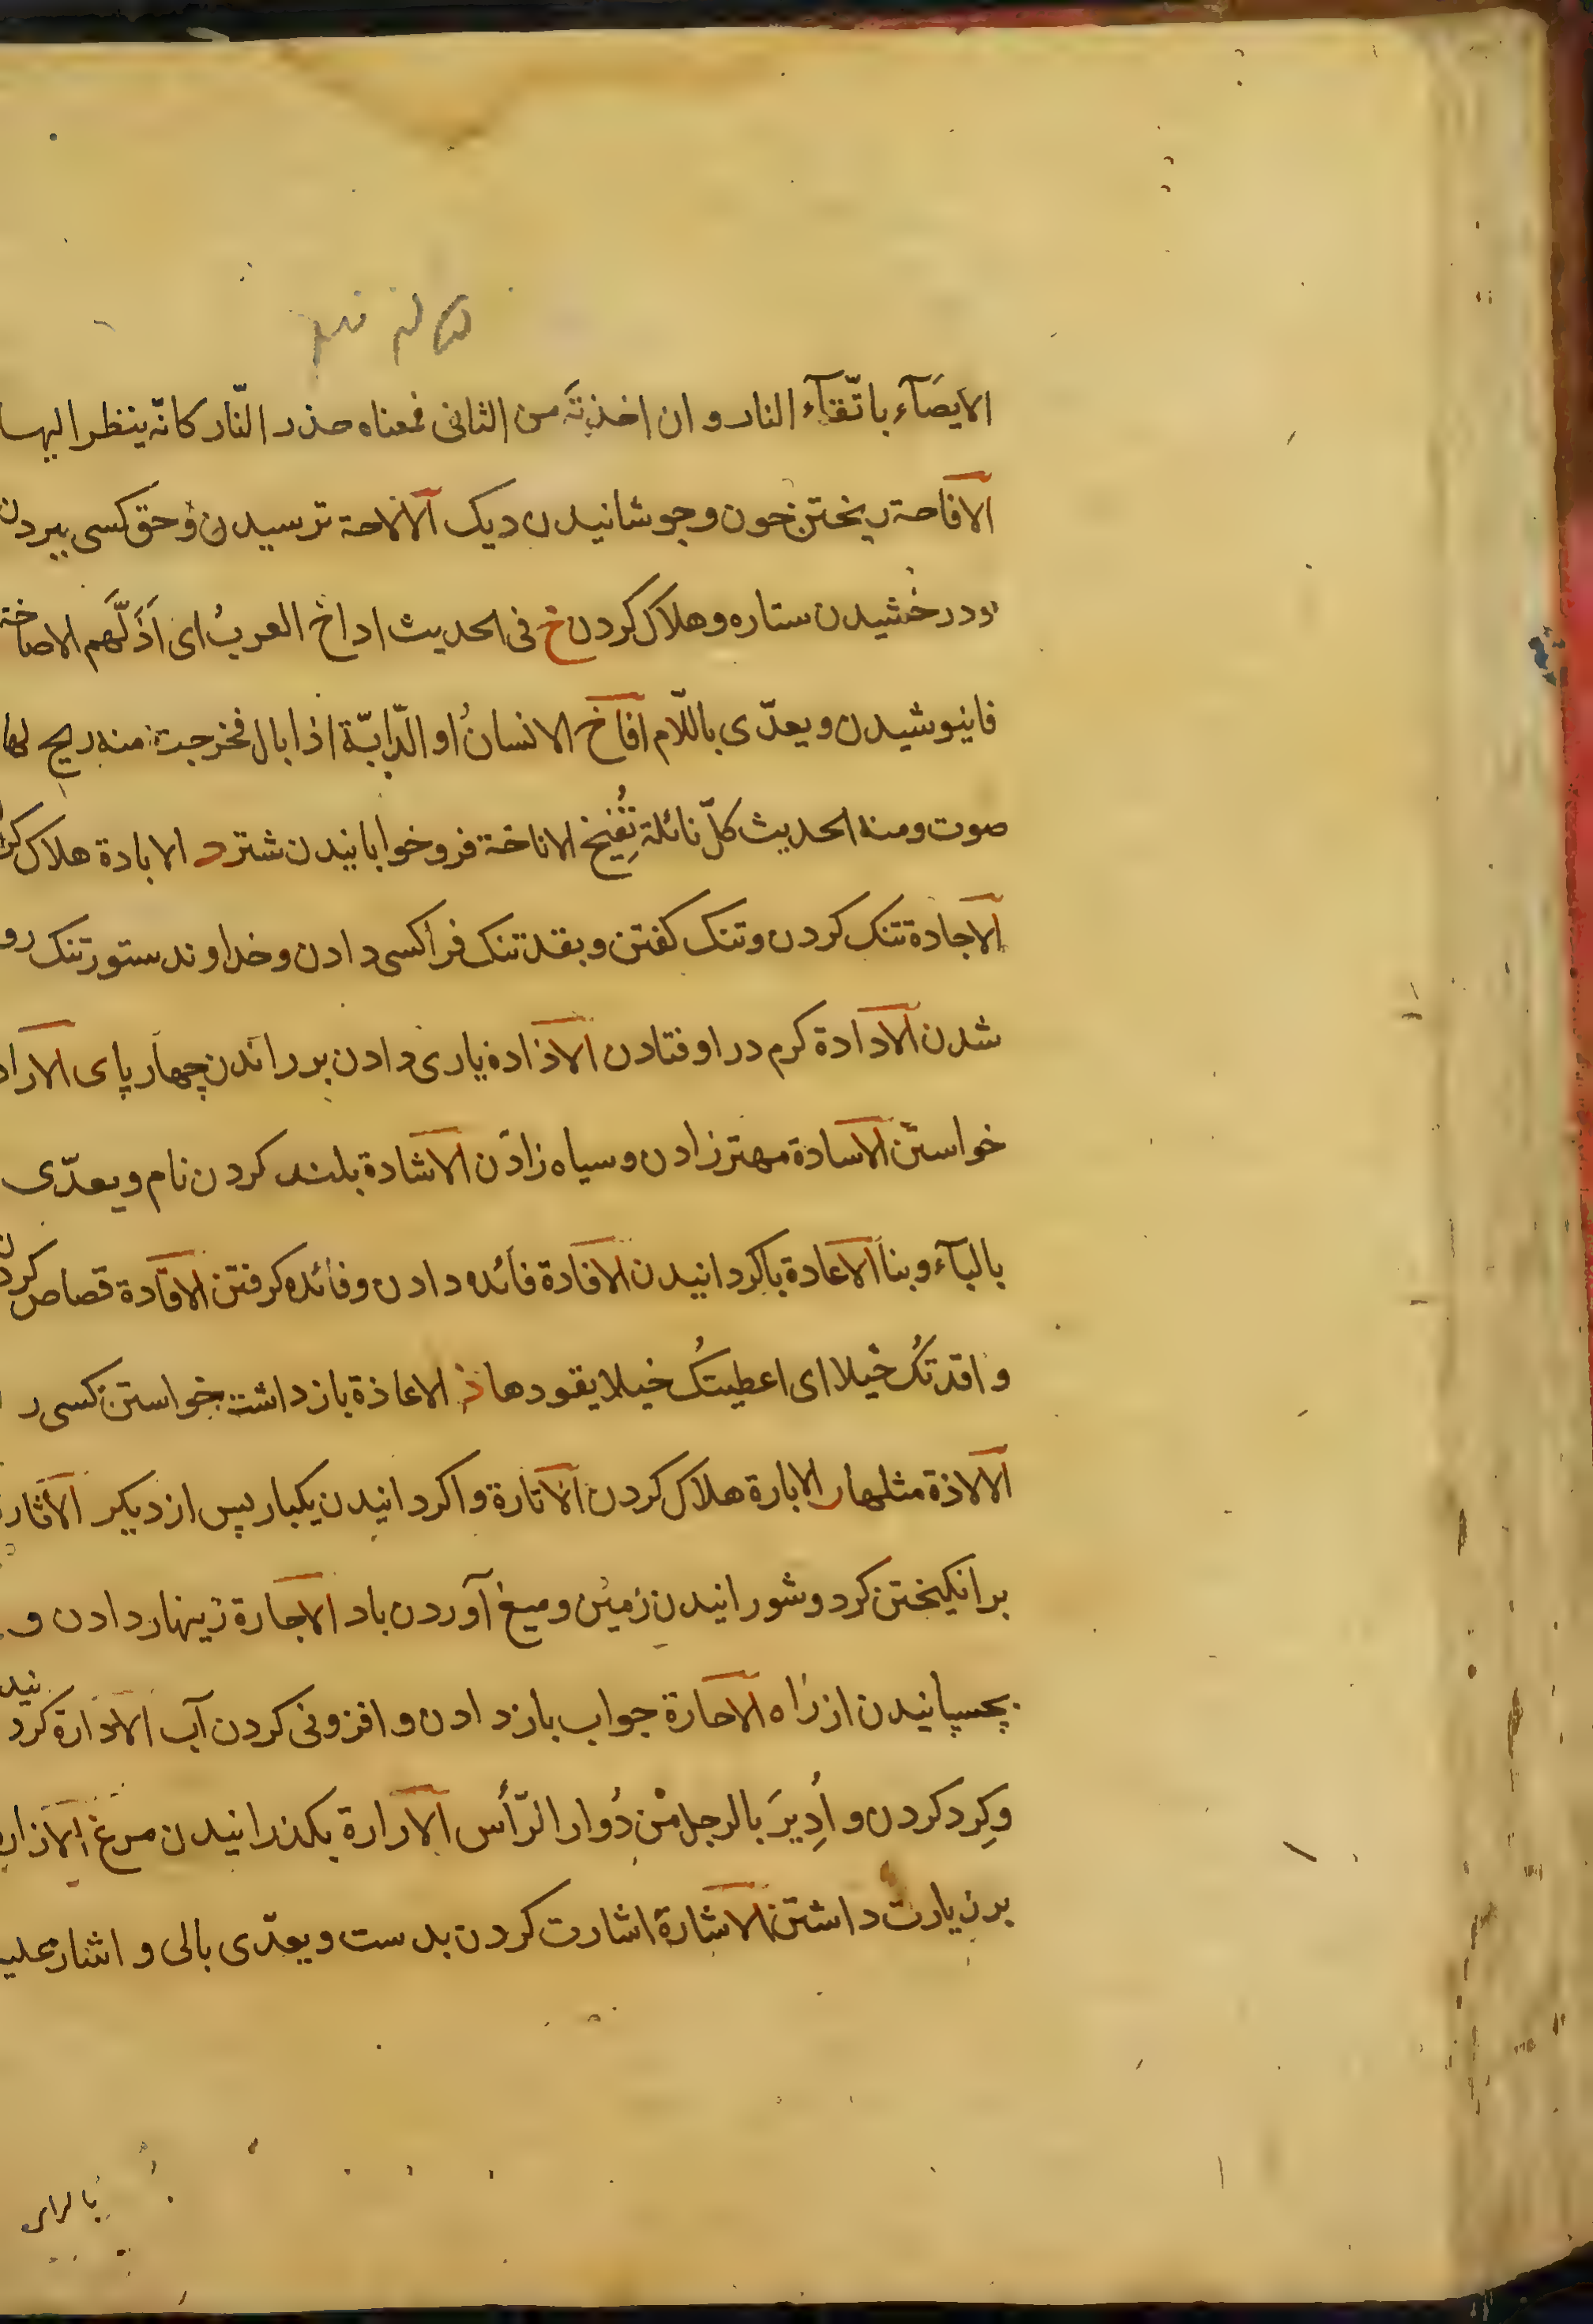 الایصَآء باتّقآء النار و ان اخذتَه من الثانی فمعناه حذر النّار کانّه ینظر الیها
الافاحة ریختن خون و جوشانیدن دیک الالاحة ترسیدن و حق کسی ببردن
و درخشیدن ستاره و هلاک کردن خ فی الحدیث اداخ العربُ ای اَذَلَّهم الاصاخة
فانیوشیدن و یعدّی باللّام افاخ الانسانُ او الدّابّة اذا بال فخرجت منه ریح لها
صوت و منه الحدیث کلّ نائلة تُفِیخ الاناخة فروخوابانیدن شتر د الابادة هلاک
الاجادة تنک کردن و تنک کفتن و بقد تنک فرا کسی دادن و خداوند ستور تنک رو
شدن الادادة کرم در اوفتادن الاذادة یاری دادن بر راندن چهار پای
خواستن الاسادة مهتر زادن و سیاه زادن الاشادة بلند کردن نام و یعدّی
بالبآء و بنا الاعادة باکردانیدن الافادة فائده دادن و فائده کرفتن الاقادة قصاص کردن
و اقدتُک خیلا ای اعطیتُک خیلا یقودها ذ الاعاذة بازداشت خواستن کسی ر
الالاذة مثلها ر الابارة هلاک کردن الاتارة واکردانیدن یکبار پس از دیکر الاثار
برانکیختن کرد و شورانیدن زمین و میغ آوردن باد الاجارة زینهار دادن و
بچسپانیدن از راه الاحارة جواب باز دادن و افزونی کردن آب الادارة کردنید
و کِرد کردن و اُدِیرَ بالرجل مْن دُوار الرّأس الارارة بکذرانیدن مرغ
بر زیارت داشتن الاشارة اشارت کردن بدست و یعدّی بالی و اشار علیه